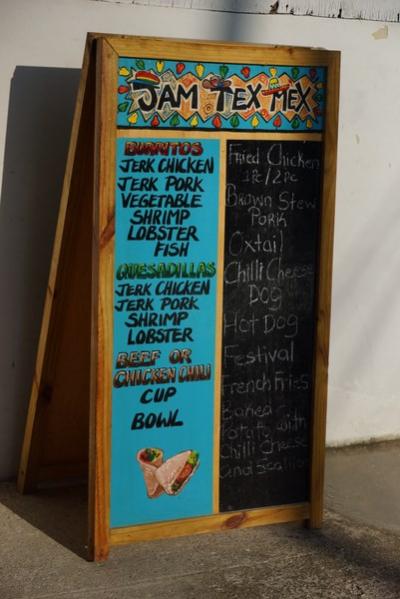 JAM TEX MEX
BURRITOS
JERK CHICKEN
JERK PORK
VEGETABLE
SHRIMP
LOBSTER
FISH
QUESADILLAS
JERK CHICKEN
JERK PORK
SHRIMP
LOBSTER
BEEF OR
CHICKEN CHILI
CUP
BOWL
Fried Chicken
1Pc/2Pc
Brown Stew
Pork
Oxtail
Chilli Cheese
Dog
Hot Dog
Festival
French Fries
Baked
Potato with
Chilli Cheese
and Scallion